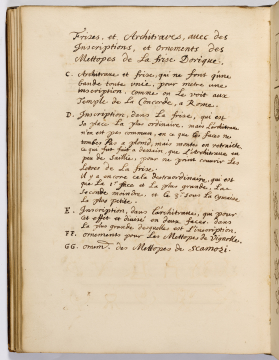 Frises, et Architraves, avec des
Inscriptions, et ornements des
Mettopes de La frise Dorique,
C. Architrave et frise, qui ne font qúne
bande toute unie, pour mettre une
inscription, comme on Le voit aux
Temple de La Concorde, a Rome.
D. Inscription, dans La frise, qui est
la place La plus ordinaire, mais l'architrave
n'en est pas commun, en ce que les faces ne
tombes Pas a plomb, mais montes en retraitte,
ce qui fait dedein, que L'Architrave en
peu de Saillie, pour ne point couvrir Les
Lettres de La frise.
il y a encore cela d'extraordinaire, qui est
que La 1e face et La plus grande, Lae
seconde moindre, et le 3e sous La Cymaise,
La plus petite.
E. Inscription, dans l'architrave, qui pour
cet effet et divisé en deux faces, dans
La plus grande desquelles est L'inscription,
FF. ornements pour Les Mettopes de Vignolle.
GG. ornemt. des Mettopes de Scamosi.